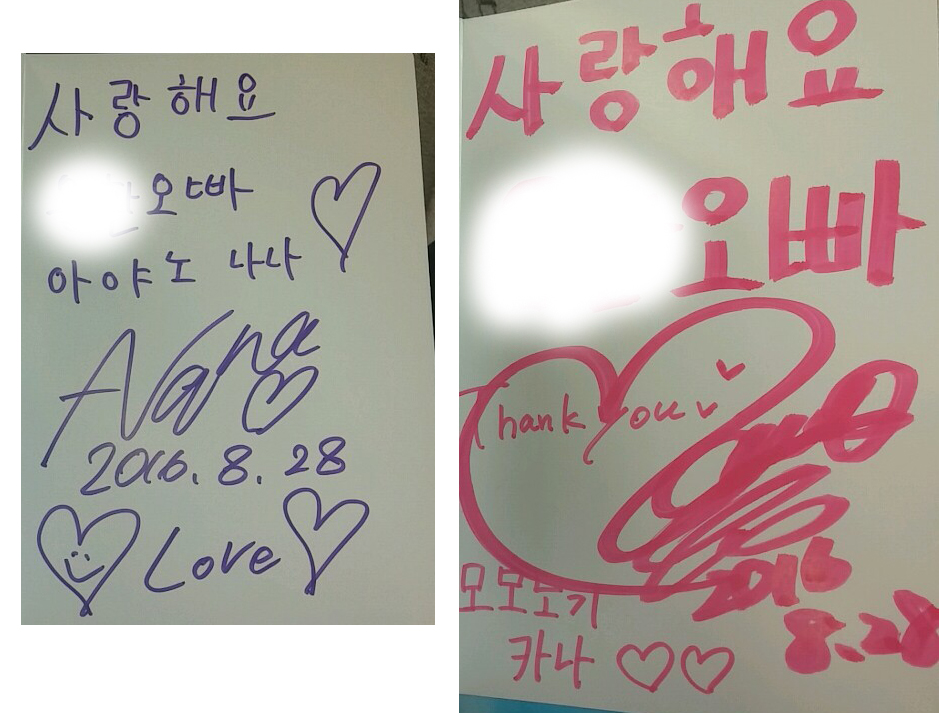 사랑해요
오빠
아야노 나나
Nana
2016. 8. 28
Love
사랑해요
오빠
Thank you
2016
8.28
모모노기
카나